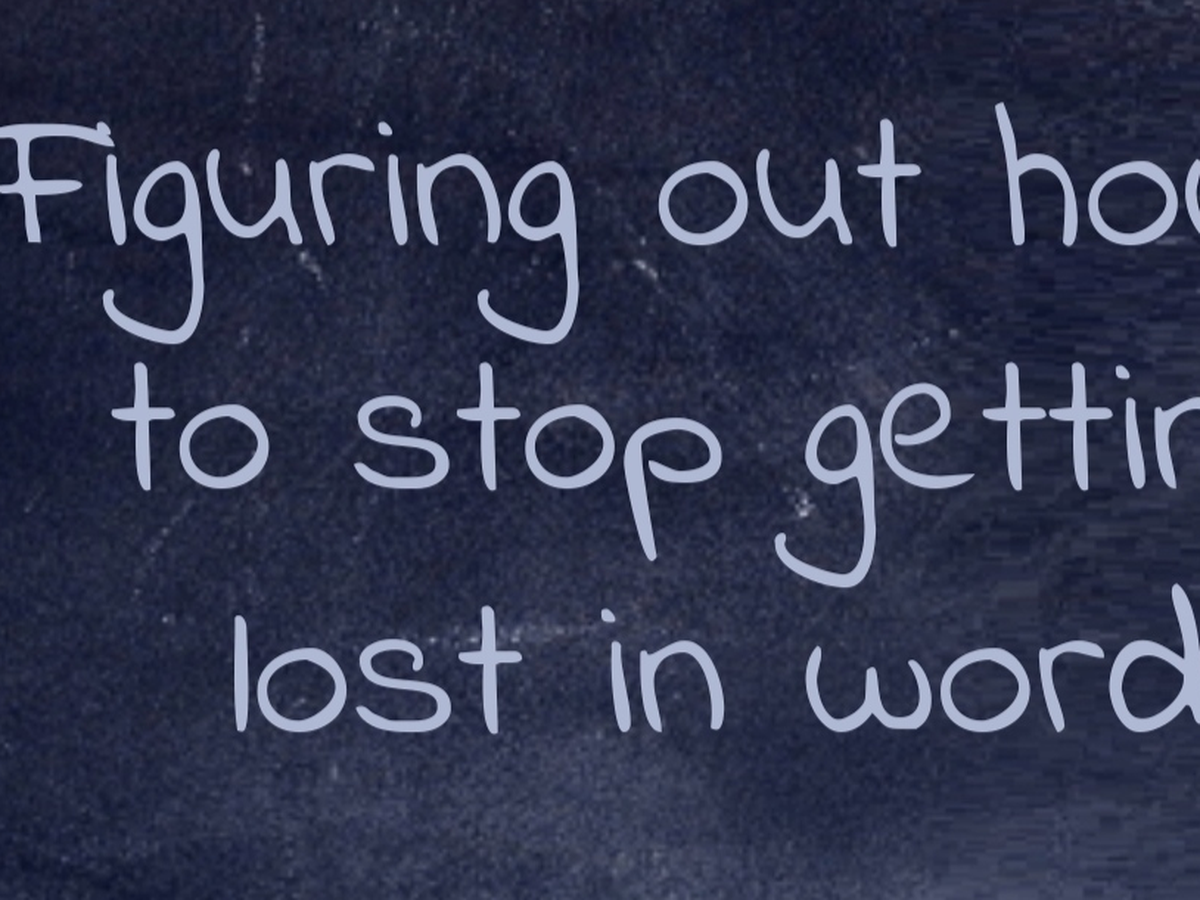 Figuring out ho
to stop gettin
lost in word